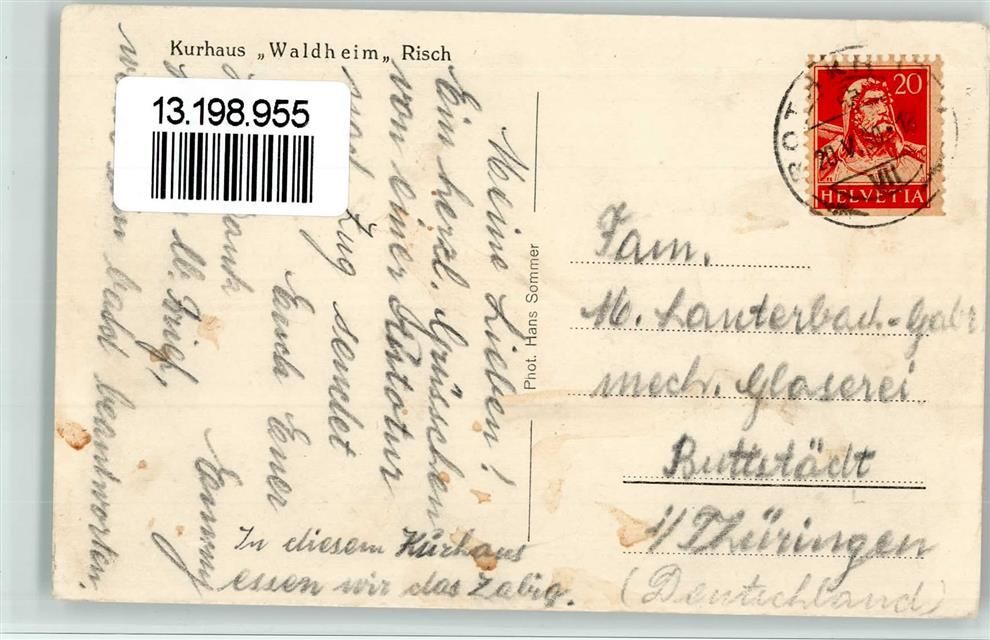 Kurhaus „Waldheim„ Risch
13.198.955
Meine Lieben!
Ein herzl. Grüsschen
von einer Autotour
Zug sendet
Euch Euer
Emmy
Dank
M. Brief,
bald beantworten.
In diesem Kurhaus
essen wir das Zabig.
Phot. Hans Sommer
20
HELVETIA
ROTKR
VII
Fam.
M. Lauterbach-Gabr
mech. Glaserei
Buttstädt
i/Thüringen
(Deutschland)